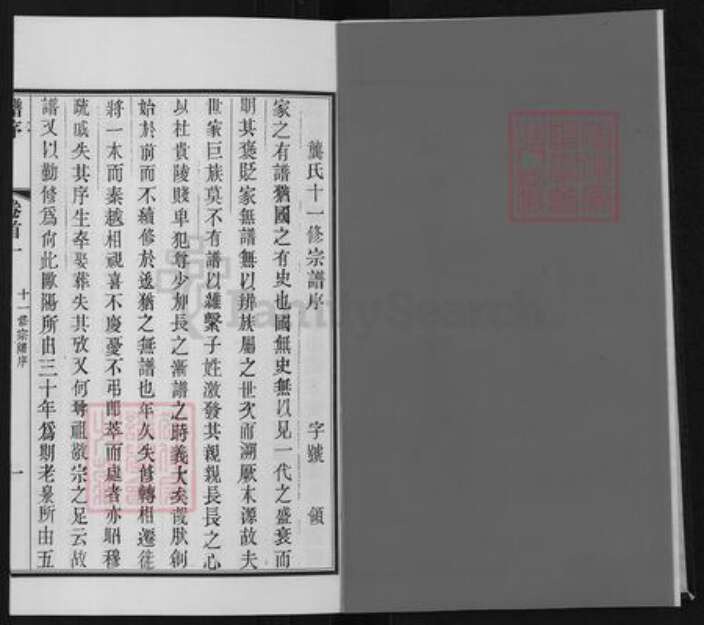 龔氏十一修宗譜序 字號 領
家之有譜猶國之有史也國無史無以見一代之盛衰而
明其褒貶家無譜無以辨族屬之世次而溯厥木源故夫
世家巨族莫不有譜以維繫子姓激發其親親長長之心
以杜貴陵賤卑犯尊少加長之漸譜之時義大矣哉肰創
始於前而不續修於後猶之無譜也年久失修轉相遷徙
將一本而秦越相視喜不慶憂不弔即萃而處者亦昭穆
疏戚失其序生卒娶葬失其攷又何尊祖敬宗之足云故
譜又以勤修爲尙此歐陽所由三十年爲期老泉所由五
譜序 卷首一 十一修宗譜序 一
FamilySearch